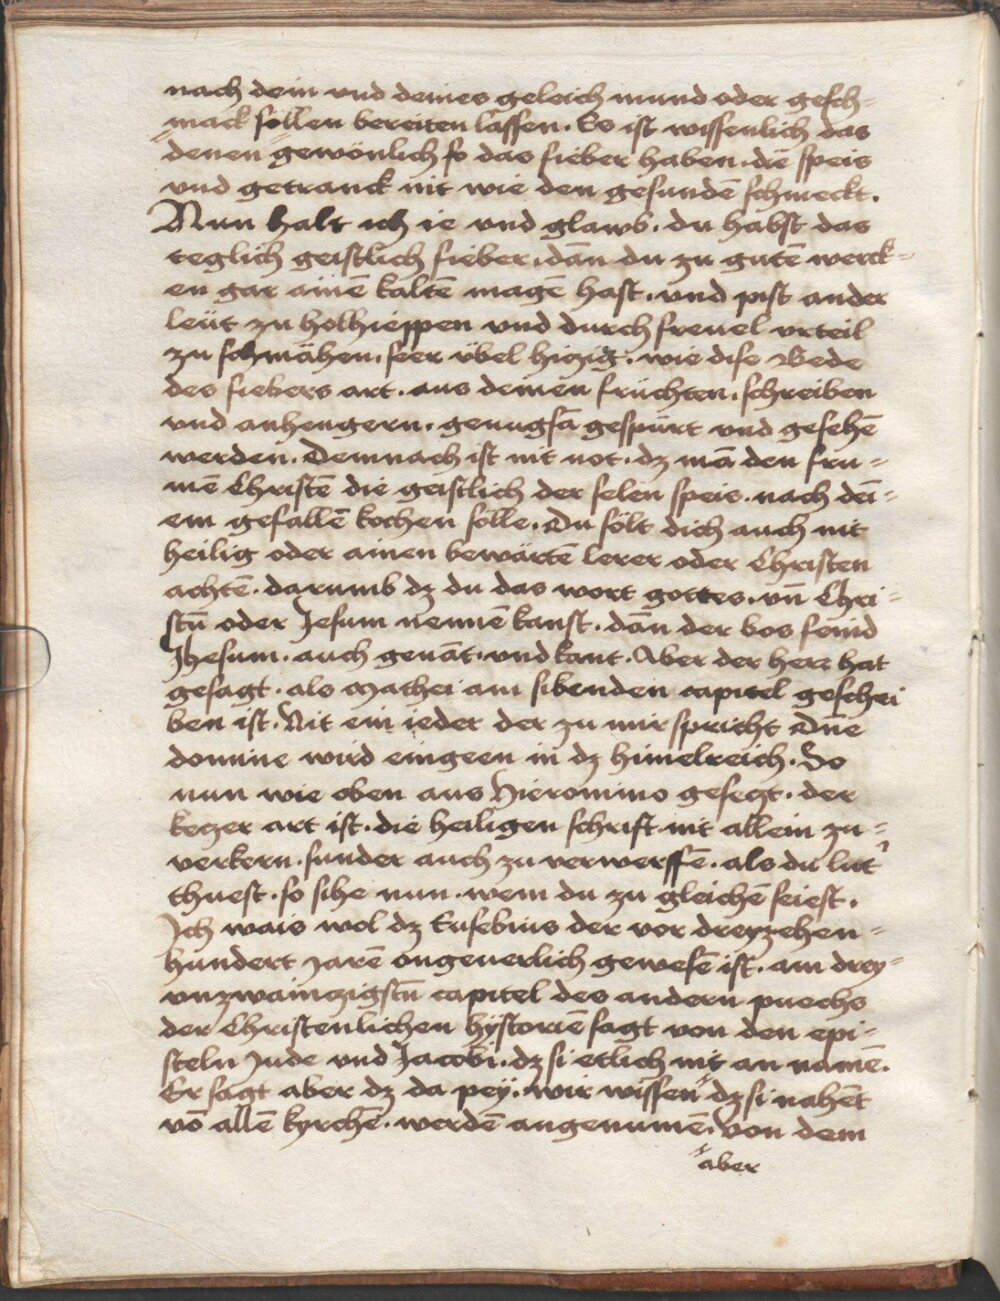 nach dein und deines geleich mund oder gesch-
mack söllen bereiten lassen. Es ist wissenlich das
denen gewönlich so das fieber haben. die speis
und getranck nit wie den gesundē schmeckt.
Nun halt ich ie und glaub. du habst das
teglich geistlich fieber. dān du zu gutē werck-
en gar ainē kaltē magē hast. und pist ander
leüt zu holhieppen und durch freuel urteil
zu schmähen. seer übel hiczig. wie dise Bede
des fiebers art. aus deinen früchten. schreiben
und anhengern. genugsā gespürt und gesehē
werden. Demnach ist nit not. dz mā den fru-
mē Christē die geistlich der selen speis. nach dei-
em gefallē kochen sölle. Du sölt dich auch nit
heilig oder ainen bewärtē lerer oder Christen
achtē. darumb dz du das wort gottes. un̄ Chri-
stū oder Jesum nennē kanst. dān der bos feind
Jhesum. auch genāt. und kant. Aber der herr hat
gesagt. als Mathei am sibenden capitel geschri
ben ist. Nit ein ieder der zu mir spricht Dn̄e
domine wird eingeen in dz himelreich. So
nun wie oben aus Hieronimo gesetzt. der
ketzer art ist. die heiligen schrift nit allein zu-
verkern. sunder auch zu verwerffē. als du lut
thuest. so sihe nun. wem du zu gleichē seiest.
Ich wais wol dz Eusebius der vor dreyzehen-
hundert jarē ongeuerlich gewesē ist. am drey-
unzwainczigstn̄ capitel des andern puechs
der Christenlichen hÿstoriē sagt von den epi-
steln Jude und Jacobi. dz si etlich nit an namē.
Er sagt aber dz da peÿ. wir wissen dz si nahēt
vō allē kyrchē. werdē angenumē. von dem
aber